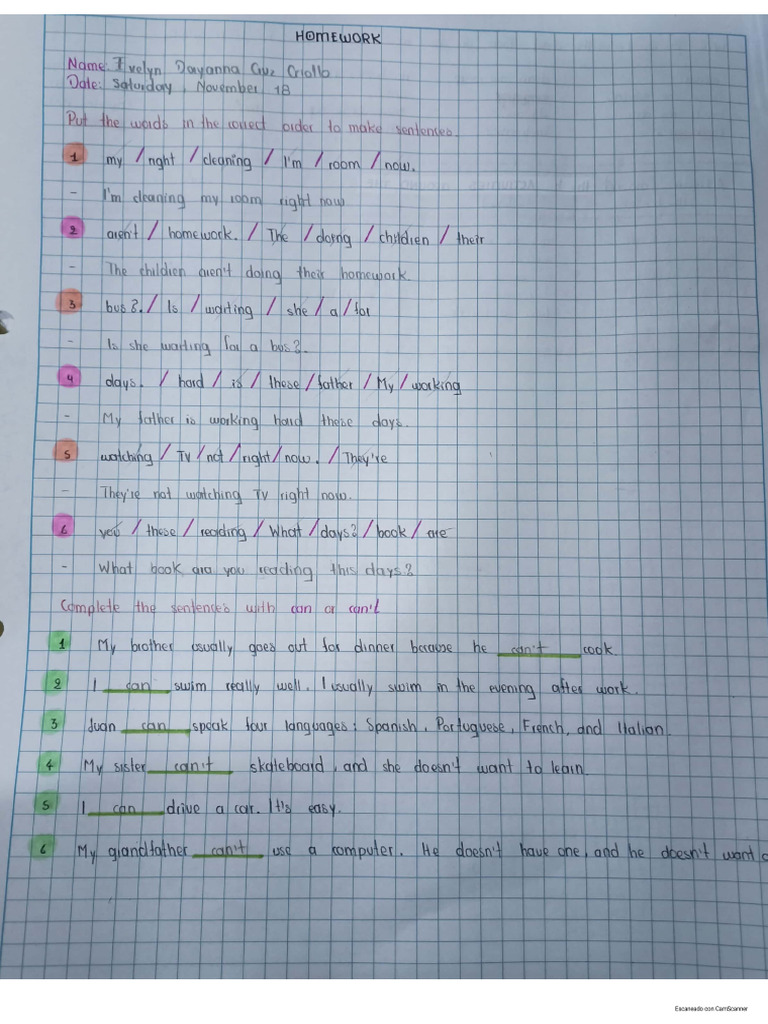 HOMEWORK
Name: Evelyn Dayanna Cruz Criollo
Date: Saturday, November 18
Put the words in the correct order to make sentences.
1 my / right / cleaning / I'm / room / now.
- I'm cleaning my room right now
2 aren't / homework. / The / doing / children / their
- The children aren't doing their homework.
3 bus?. / Is / waiting / she / a / for
- Is she waiting for a bus?.
4 days. / hard / is / these / father / My / working
- My father is working hard these days.
5 watching / TV / not / right / now. / They're
- They're not watching TV right now.
6 you / these / reading / What / days? / book / are
- What book are you reading this days?
Complete the sentences with can or can't
1 My brother usually goes out for dinner because he can't cook.
2 I can swim really well. I usually swim in the evening after work.
3 Juan can speak four languages: Spanish, Portuguese, French, and Italian.
4 My sister can't skateboard, and she doesn't want to learn.
5 I can drive a car. It's easy.
6 My grandfather can't use a computer. He doesn't have one, and he doesn't want
Escaneado con CamScanner